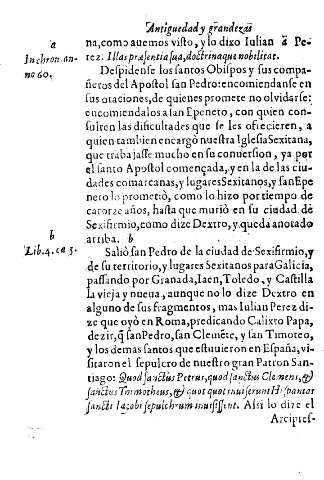 Antiguedad y grandezas
a
In chron. an-
no 60.
na, como auemos visto, y lo dixo Iulian a Pe-
rez. Illas præsentia sua, doctrinaque nobilitat.
Despidense los santos Obispos y sus compa-
ñeros del Apostol san Pedro: encomiendanse en
sus oraciones, de quienes promete no olvidarse:
encomiendalos a san Epeneto, con quien con-
sulten las dificultades que se les ofrecieren, a
quien tambien encargó nuestra Iglesia Sexitana,
que trabajasse mucho en su conuersion, ya por
el santo Apostol començada, y en la de las ciu-
dades comarcanas, y lugares Sexitanos, y san Epe
neto lo prometió, como lo hizo por tiempo de
catorze años, hasta que murió en su ciudad de
Sexifirmio, como dize Dextro, y queda anotado
arriba. b
b
Lib. 4. ca 5.
Salió san Pedro de la ciudad de Sexifirmio, y
de su territorio, y lugares Sexitanos para Galicia,
passando por Granada, Iaen, Toledo, y Castilla
la vieja y nueua, aunque no lo dize Dextro en
alguno de sus fragmentos, mas Iulian Perez di-
ze que oyò en Roma, predicando Calixto Papa,
dezir, q̃ san Pedro, san Clemẽte, y san Timoteo,
y los demas santos que estuuieron en España, vi-
sitaron el sepulcro de nuestro gran Patron San-
tiago: Quod sanctus Petrus, quod sanctus Clemens, &
sanctus Timotheus, & quot quot inuiserunt Hispanias
sancti Iacobi sepulchrum inuisissent. Assi lo dize el
Arcipres-